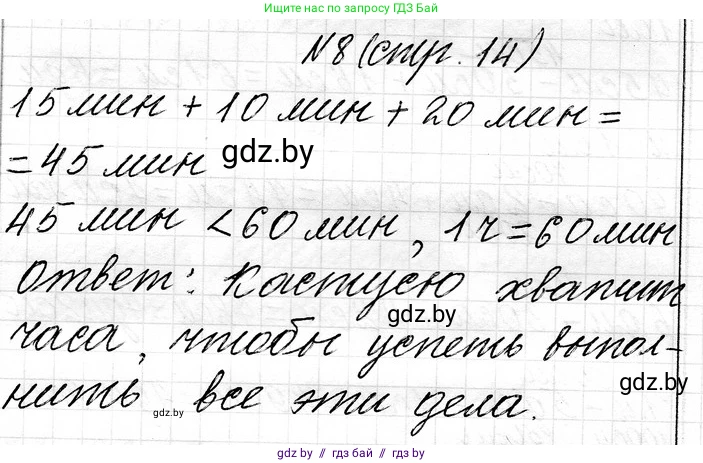 Ищите нас по запросу ГДЗ Бай
N8 (стр. 14)
15 мин + 10 мин + 20 мин =
= 45 мин gdz.by
45 мин < 60 мин, 1 ч = 60 мин
Ответ: Кастусю хватит
gdz.by
часа, чтобы успеть выпол-
gdz.by
нить gdz.by все эти дела.
gdz.by // гдз бай // гдз бу